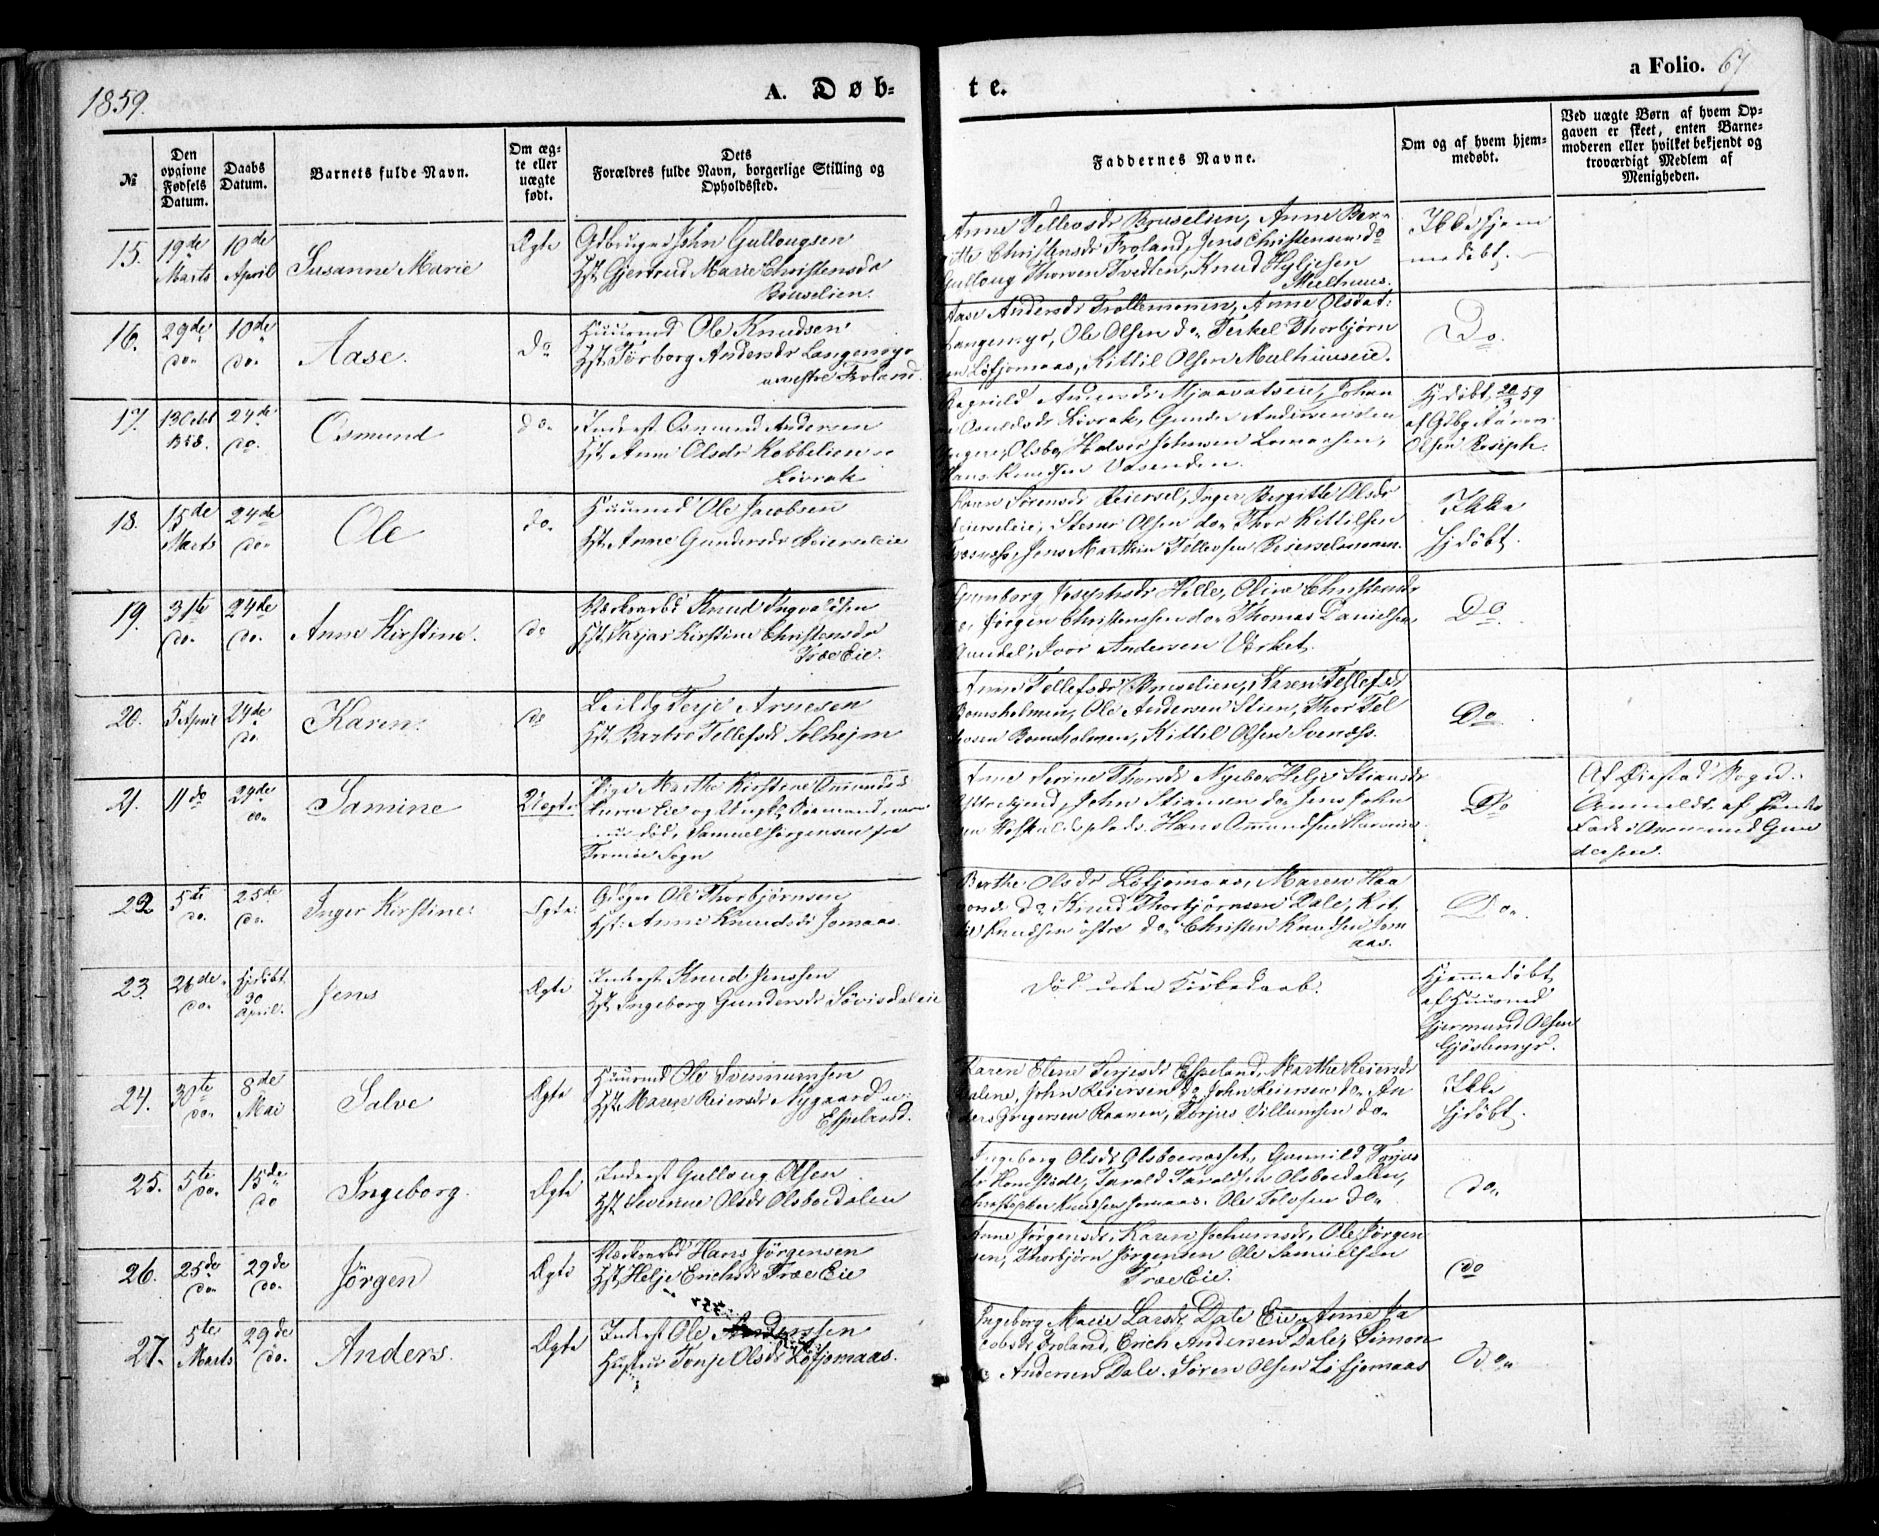 1859.
A. Døb-
te.
a Folio. 67
№
Den
opgivne
Fødsels
Datum.
Daabs
Datum.
Barnets fulde Navn.
Om æg-
te eller
uægte
født.
Dets
Forældres fulde Navn, borgerlige Stilling og
Opholdssted.
Faddernes Navne.
Om og af hvem hjem-
medøbt.
Ved uægte Børn af hvem Op-
gaven er skeet, enten Barne-
moderen eller hvilket bekjendt og
troværdigt Medlem af
Menigheden.
15. 19de Marts
10de April
Susanne Marie
Ægte
Gdbruger John Gullougsen
Hst Gjertrud Marie Christensdr
Bouselien.
Anne Tellevsdr Bouselien, Anne Ber-
gitte Christensdr Froland, Jens Christensen do
Gulloug Thoresen Tvedten, Knud
Mulhuus.
Ikke hjem
medøbt.
16. 29de do
10de do.
Aase.
do
Huusmd Ole Knudsen
Hst Torborg Andersdr Langemyr
Froland.
Aase Andersdr Trollemonen, Anne Olsdat:
Langemyr, Ole Olsen do. Terkel Thorbjørn
sen Løfjomaas, Kittil Olsen Mulhuuseie.
Do.
17. 13 Octob 1858.
24de do.
Osmund
do.
Inderst Osmund Andersen
Hst Anne Olsdr Kobbelien
Livrak
Ragnild Andersdr
Livrak, Gunder Andersen
Halvor Johnsen Lomaasen,
Hans Knudsen Vasenden.
Hjdøbt 20/3 59
af Gdbg
Olsen Risdph.
18. 15de Marts
24de do.
Ole
do.
Huusmd Ole Jacobsen
Hst Anne Gundersdr Reierseleie
Karen Sørensdr Reiersel, Inger Bergitte Olsdr
Reierseleie, Olsen do. Thor Kittilsen
Jens Martin Tellevsen Reierselmoen.
Ikke
hjdøbt.
19. 31te do.
24de do.
Anne Kirstine.
do
Værksarbd Knud Ingvaldsen
Hst Tarjar Kirstine Christensdr
Træe Eie.
Gunborg Josephsdr Hille, Oline Christensdr
do, Jørgen Christensen do. Thomas Danielsen
Arendal, Ivar Andersen Værket.
Do.
20. 5 April
24de do.
Karen.
do
Leildg Terje Arnesen
Hst Barbro Tellefsdr Solhejm
Anne Tellefsdr Bouselien, Karen Tellefsdr
Bomsholmen, Ole Andersen Stien, Thor Tel
lefsen Bomsholmen, Kittil Olsen Svenæss.
Do
21. 11 do
24de do.
Samine
Uægte
Pige Marthe Kirstine Ommundsd
Eie og Ungk.
død, Samuel Jørgensen fra
Tromøe Sogn
Anne Serine Thorsdr Nyebo, Helje Stiansdr
Ytterkjend, John Stiansen do. Jens John
sen Hans Ommundsen
Do
Af Øiestad Sogn.
Anmeldt af
Fader Ommund Gun
dersen.
22. 5te do.
25de do.
Inger Kirstine.
Ægte.
Gdeier Ole Thorbjørnsen
Hst: Anne Knudsdr Jomaas.
Berthe Olsdr Løfjomaas, Maren Haa
vorsd do. Knud Thorbjørnsen Dale, Kit
til Knudsen østre do. Christen Knudsen Jom
aas.
Do.
23. 26de do.
Hjdøbt 30 April.
Jens
Ægte
Inderst Knud Jenssen
Hst Ingeborg Gundersdr Søvisdaleie
Død uden Kirkedaab.
Hjemmedøbt
af Huusmd
Gjermund Olsen
Gjøslemyr.
24. 30te do.
8de Mai
Salve
Ægte
Huusmd Ole Svennumsen
Hst Maren Reiersdr Nygaard
Espeland.
Karen Elene Terjesdr Espeland, Marthe Reiersdr
Dalene, John Reiersen do, John Reiersen do. An
ders Gregersen Raanen, Torjus Villumsen do.
Ikke
hjdøbt.
25. 5te do.
15de do
Ingeborg.
Ægte
Inderst Gulloug Olsen
Hst Severine Olsdr Olsboedalen
Ingeborg Olsdr Olsboeneset, Gunnild Torjus
dr Tarald Taraldsen Olsboedalen,
Christopher Knudsen Jomaas. Ole Tolofsen do.
do.
26. 25de do.
29de do.
Jörgen
Ægte
Værksarbd Hans Jörgensen
Hst Helje Erichsdr Træe Eie
Anne Jørgensdr, Karen Jochumsdr, Ole Jörgen
sen, Thorbjørn Jørgensen Ole Samuelsen
Træe Eie.
do
27. 5te Marts
29de do.
Anders.
Ægte
Inderst Ole Anderssen
Hustru Tonje Olsdr Løfjomaas.
Ingeborg Marie Larsdr Dale Eie, Anne Ja
cobsdr Froland, Erich Andersen Dale, Simon
Andersen Dale. Søren Olsen Løfjomaas
Do.